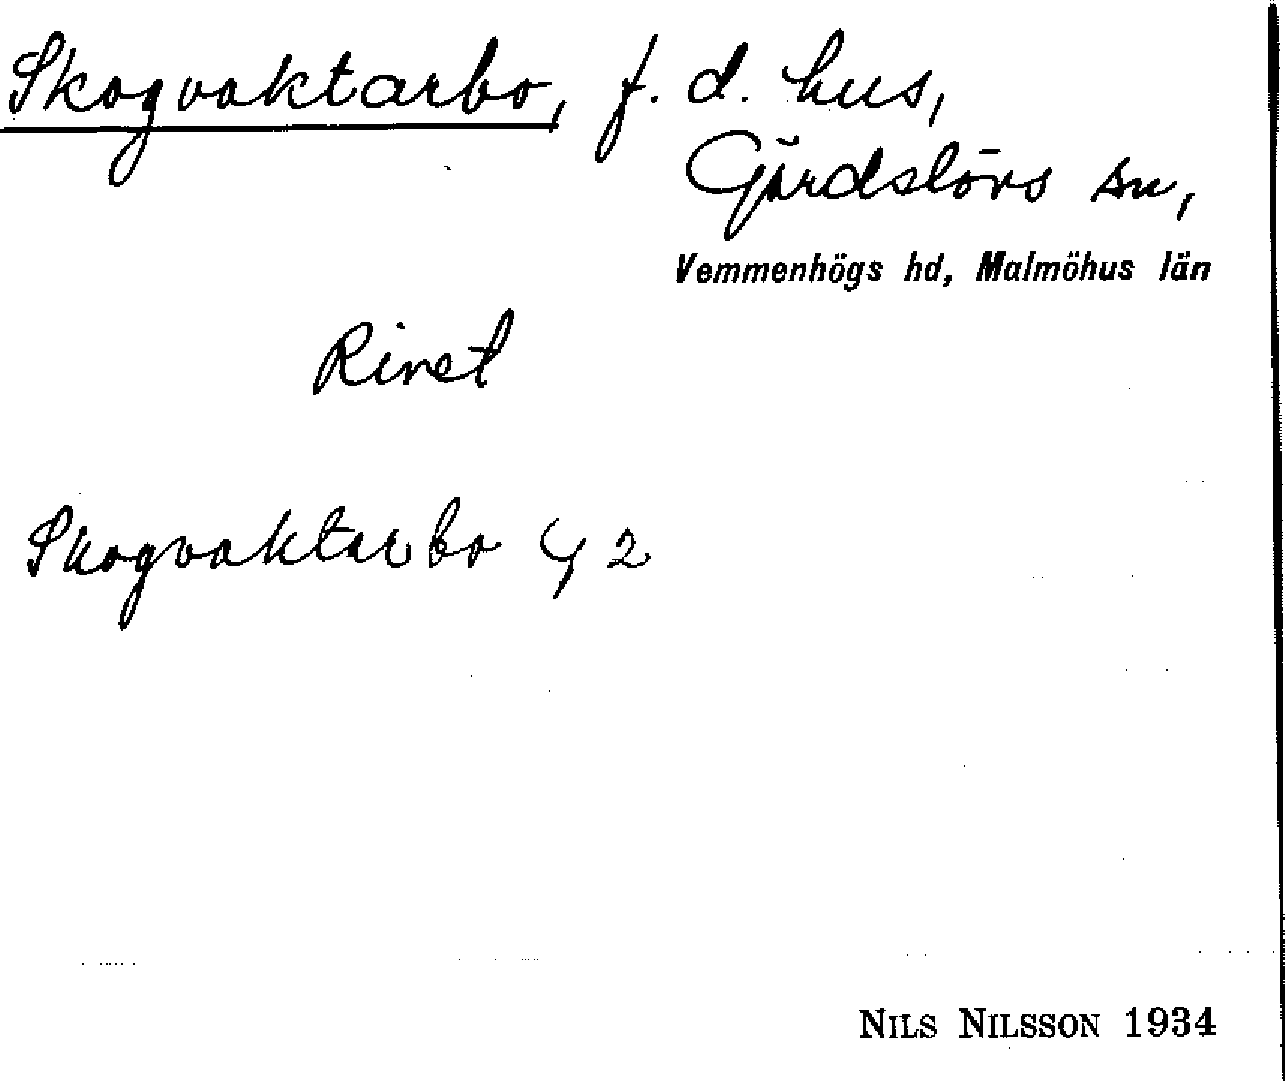 Skogvaktarbo, f. d. hus,
Gärdslövs sn,
Vemmenhögs hd, Malmöhus län
Rivet
Skogvaktarbo 4/2
NILS NILSSON 1934